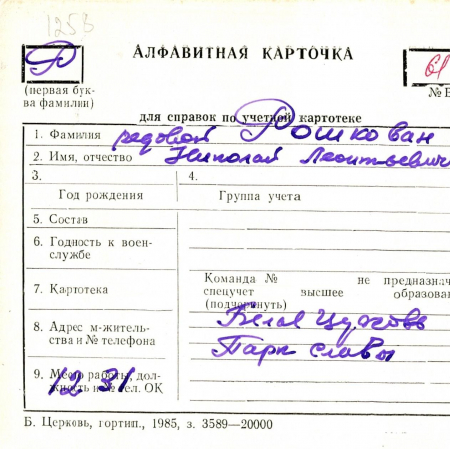 1253
АЛФАВИТНАЯ КАРТОЧКА
Р
61
(первая бук-
ва фамилии)
№ В
для справок по учетной картотеке
1. Фамилия рядовой Рошкован
2. Имя, отчество Николай Леонтьевич
3.
4.
Год рождения
Группа учета
5. Состав
6. Годность к воен-
службе
7. Картотека
Команда № не предназнач
спецучет высшее образован
(подчеркнуть)
8. Адрес м-житель-
ства и № телефона
Белая Церковь
Парк славы
9. Место работы, дол-
жность и № тел. ОК
12 31.
Б. Церковь, гортип., 1985, з. 3589—20000